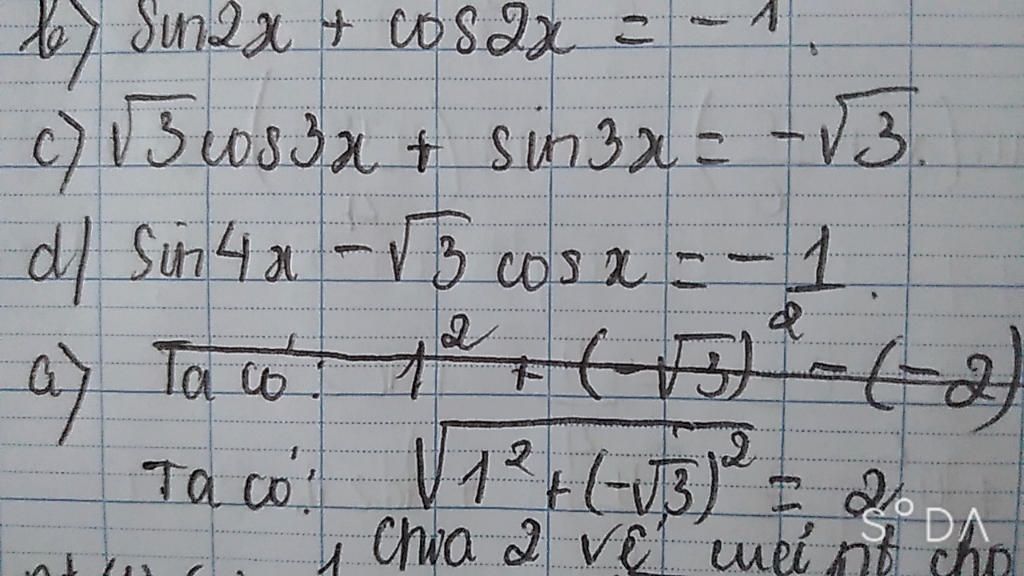 b) sin2x + cos2x = -1.
c) √3cos3x + sin3x = -√3.
d) sin4x - √3 cosx = -1.
a) Ta có: 1² + (-√3)² - (-2)
Ta có: √(1² + (-√3)²) = 2
Chia 2 vế cho
S°DA